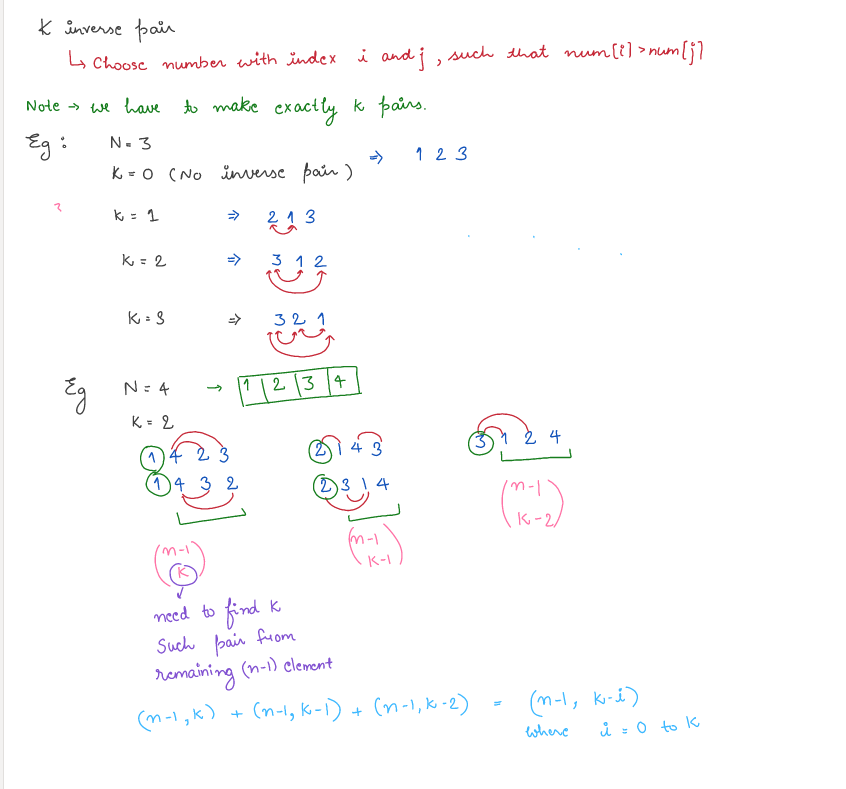 K inverse pair
↳ Choose number with index i and j, such that num[i] > num[j]
Note → we have to make exactly k pairs.
Eg : N = 3
K = 0 (No inverse pair) ⇒ 1 2 3
?
K = 1 ⇒ 2 1 3
K = 2 ⇒ 3 1 2
K = 3 ⇒ 3 2 1
Eg N = 4 → 1 2 3 4
K = 2
1 4 2 3 2 1 4 3 3 1 2 4
1 4 3 2 2 3 1 4
(n-1 K-2)
(n-1 K) (n-1 K-1)
need to find K
Such pair from
remaining (n-1) element
(n-1, K) + (n-1, K-1) + (n-1, K-2) = (n-1, K-i)
where i = 0 to K